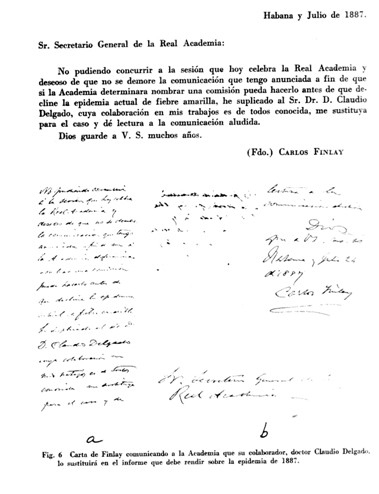 Habana y Julio de 1887.
Sr. Secretario General de la Real Academia:
No pudiendo concurrir a la sesión que hoy celebra la Real Academia y
deseoso de que no se demore la comunicación que tengo anunciada a fin de que
si la Academia determinara nombrar una comisión pueda hacerlo antes de que de-
cline la epidemia actual de fiebre amarilla, he suplicado al Sr. Dr. D. Claudio
Delgado, cuya colaboración en mis trabajos es de todos conocida, me sustituya
para el caso y dé lectura a la comunicación aludida.
Dios guarde a V. S. muchos años.
(Fdo.) CARLOS FINLAY
No pudiendo concurrir
á la sesion que hoy celebra
la Real Academia y
deseoso de que no se demore
la comunicacion que tengo
pueda hacerlo antes de
que decline la epidemia
D. Claudio Delgado
cuya colaboracion en
mis trabajos es de todos
conocida me sustituya
para el caso y de
lectura a la
Dios
Habana y Julio
de 1887
Carlos Finlay
Sr. Secretario General
Real Academia
a
b
Fig. 6 Carta de Finlay comunicando a la Academia que su colaborador, doctor Claudio Delgado,
lo sustituirá en el informe que debe rendir sobre la epidemia de 1887.